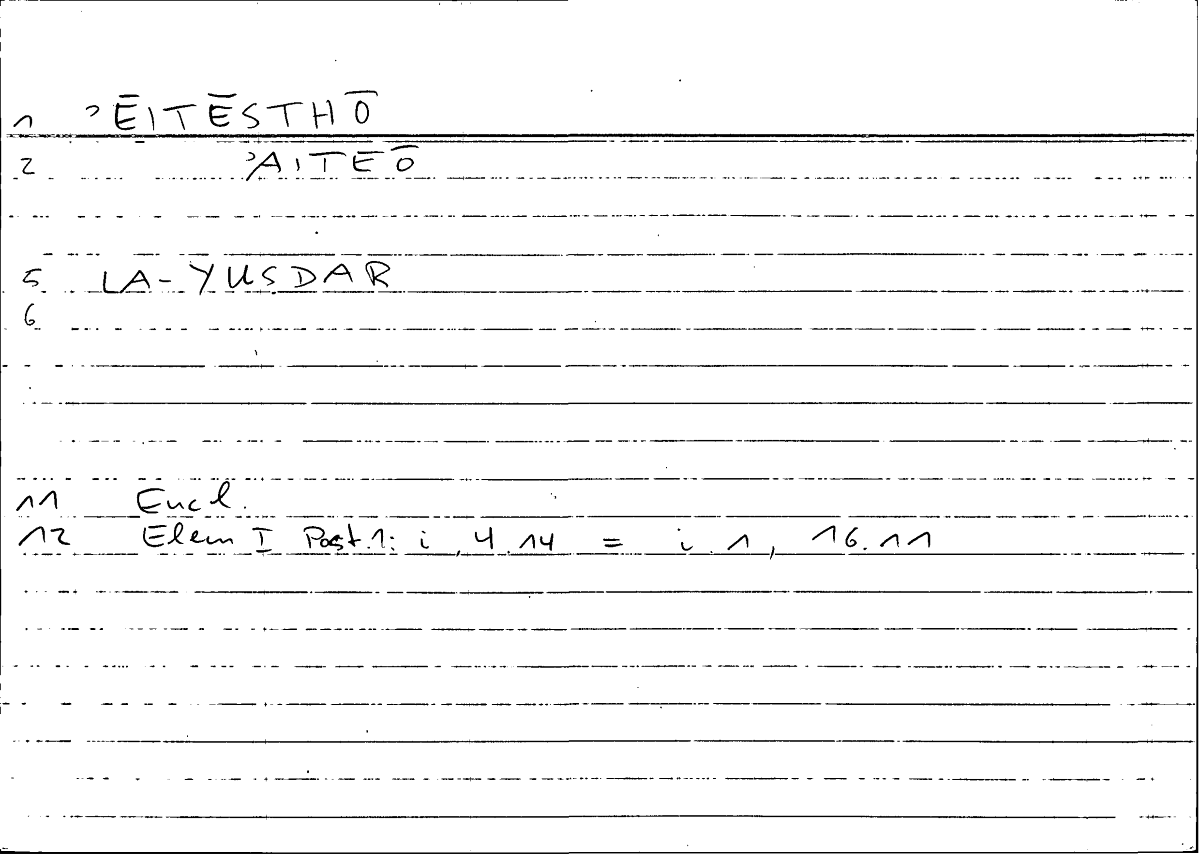 1 ʾĒITĒSTHŌ
2 ʾAITEŌ
5 LA-YUSDAR
6
11 Eucl.
12 Elem I Post.1: i, 4.14 = i.1, 16.11